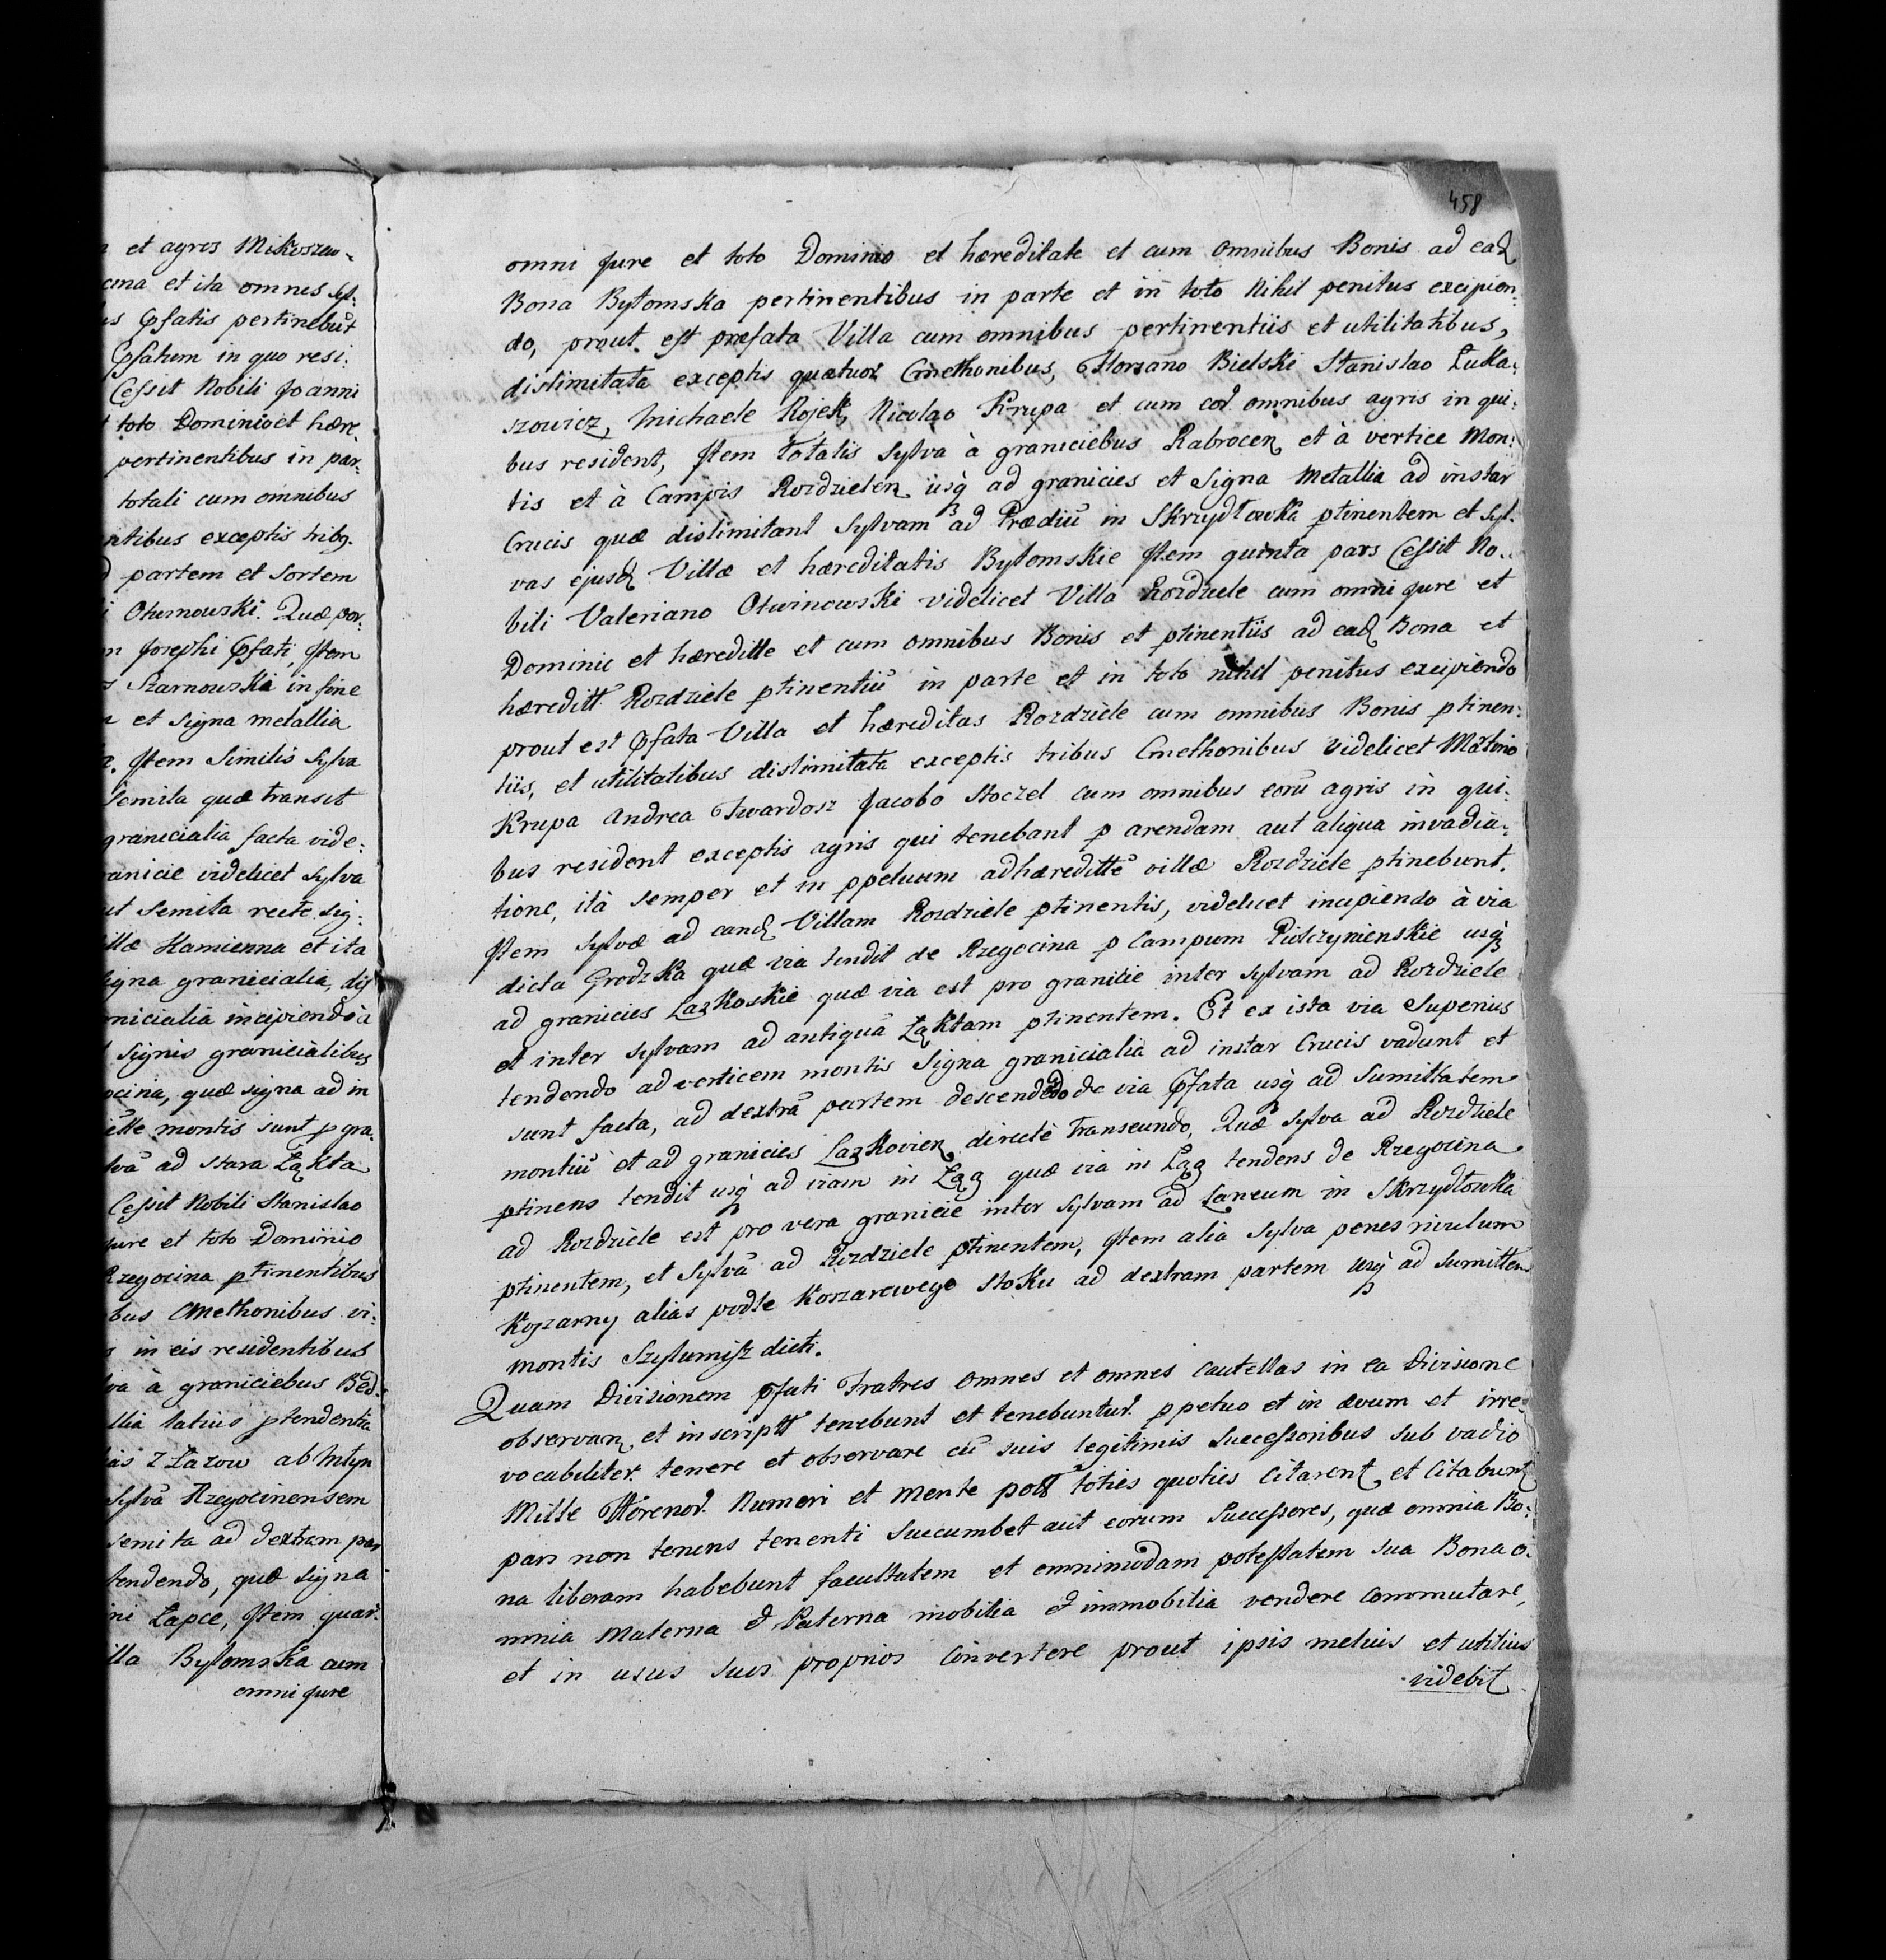 et agros Mikoszew-
cina et ita omnes syl-
us pfatis pertinebūt
pfatum in quo resi:
Cessit Nobili Joanni
toto Dominio et hære-
pertinentibus in par-
totali cum omnibus
ntibus exceptis tribq.
partem et Sortem
i Otwinowski. Quæ por-
m Josephi pfati, Item
Szarnowska in fine
et signa metallia
Item Similis Sylva
semita quæ transit
granicialia facta vide:
granicie videlicet Sylva
ut semita recte sig:
illæ Kamienna et ita
signa granicialia, dis
nicialia incipiendo à
signis granicialibus
ocina, quæ signa ad in
montis sunt p gra-
lvā ad stara Łąkta
Cessit Nobili Stanislao
jure et toto Dominio
Rzegocina ptinentibus
bus Cmethonibus vi:
in eis residentibus
va à graniciebus Bed-
llia latius ptendentia
ias z Lazow ab
Sylvā Rzegocinensem
semita ad dextram par
tendendo, quæ signa
ni Łapce, Item quar-
lla Bytomska cum
omni jure
458
omni jure et toto Dominio et hæreditate et cum omnibus Bonis ad eaḍ
Bona Bytomska pertinentibus in parte et in toto Nihil penitus excipien-
do, prout est præfata Villa cum omnibus pertinentiis et utilitatibus,
distimitata exceptis quatuor Cmethonibus, Floriano Bielski Stanislao Łuka-
szowicz, Michaele Rojek, Nicolao Krupa et cum eoꝝ omnibus agris in qui-
bus resident, Item totalis Sylva à graniciebus Rabrocen et à vertice Mon-
tis et à Campis Rozdzielen usq ad granicies et Signa Metallia ad instar
Crucis quæ distimitant Sylvam ad Prædiū in Skrzydłowka ptinentem et Syl-
vas ejusḍ Villæ et hæreditatis Bytomskie Item quinta pars Cessit No-
bili Valeriano Otwinowski videlicet Villa Rozdziele cum omni jure et
Dominic et hæreditte et cum omnibus Bonis et ptinentiis ad eaḍ Bona et
hæreditt Rozdziele ptinentiū in parte et in toto nihil penitus excipiendo
prout est pfata Villa et hæreditas Rozdziele cum omnibus Bonis ptinen-
tiis, et utilitatibus distimitata exceptis tribus Cmethonibus videlicet Matino
Krupa Andrea Twardosz Jacobo Stoczel cum omnibus eorū agris in qui-
bus resident exceptis agris qui tenebant p arendam aut aliqua invadia-
tione, ità semper et in ppetuum ad hæredittē villæ Rozdziele ptinebunt.
Item Sylvæ ad eanḍ Villam Rozdziele ptinentis, videlicet incipiendo à via
dicta Grodzka quæ via tendit de Rzegocina p Campum usq
ad granicies Laskoskie quæ via est pro granicie inter sylvam ad Rozdziele
et inter sylvam ad antiquā Łąktam ptinentem. Et ex ista via Superius
tendendo ad verticem montis Signa granicialia ad instar Crucis vadunt et
sunt facta, ad dextrā partem descendendo de via pfata usq ad Sumittatem
montiū et ad granicies Laskovien directè transeundo, Quæ sylva ad Rozdziele
ptinens tendit usq ad viam in Łąg quæ via in Łąg tendens de Rzegocina
ad Rozdziele est pro vera granicie inter sylvam ad Laneum in Skrzydłowka
ptinentem, et Sylvā ad Rozdziele ptinentem, Item alia Sylva penes rivulum
Koszarny alias podle Koszarowego Stoku ad dextram partem usq ad Sumittem
montis dicti.
Quam Divisionem pfati Fratres omnes et omnes cautellas in ea Divisione
observan et in scriptt tenebunt et tenebuntur ppetuo et in ævum et irre-
vocabiliter tenere et observare cū suis legitimis Successoribus sub vadio
Mille Florenor. Numeri et Monte poll toties quoties Citarent et Citabunt
pars non tenens tenenti Succumbet aut eorum Successores, quæ omnia Bo-
na liberam habebunt facultatem et omnimodam potestatem sua Bona o-
mnia Materna & Paterna mobilia & immobilia vendere commutare,
et in usus suos proprios Convertere prout ipsis melius et utilius
videbit